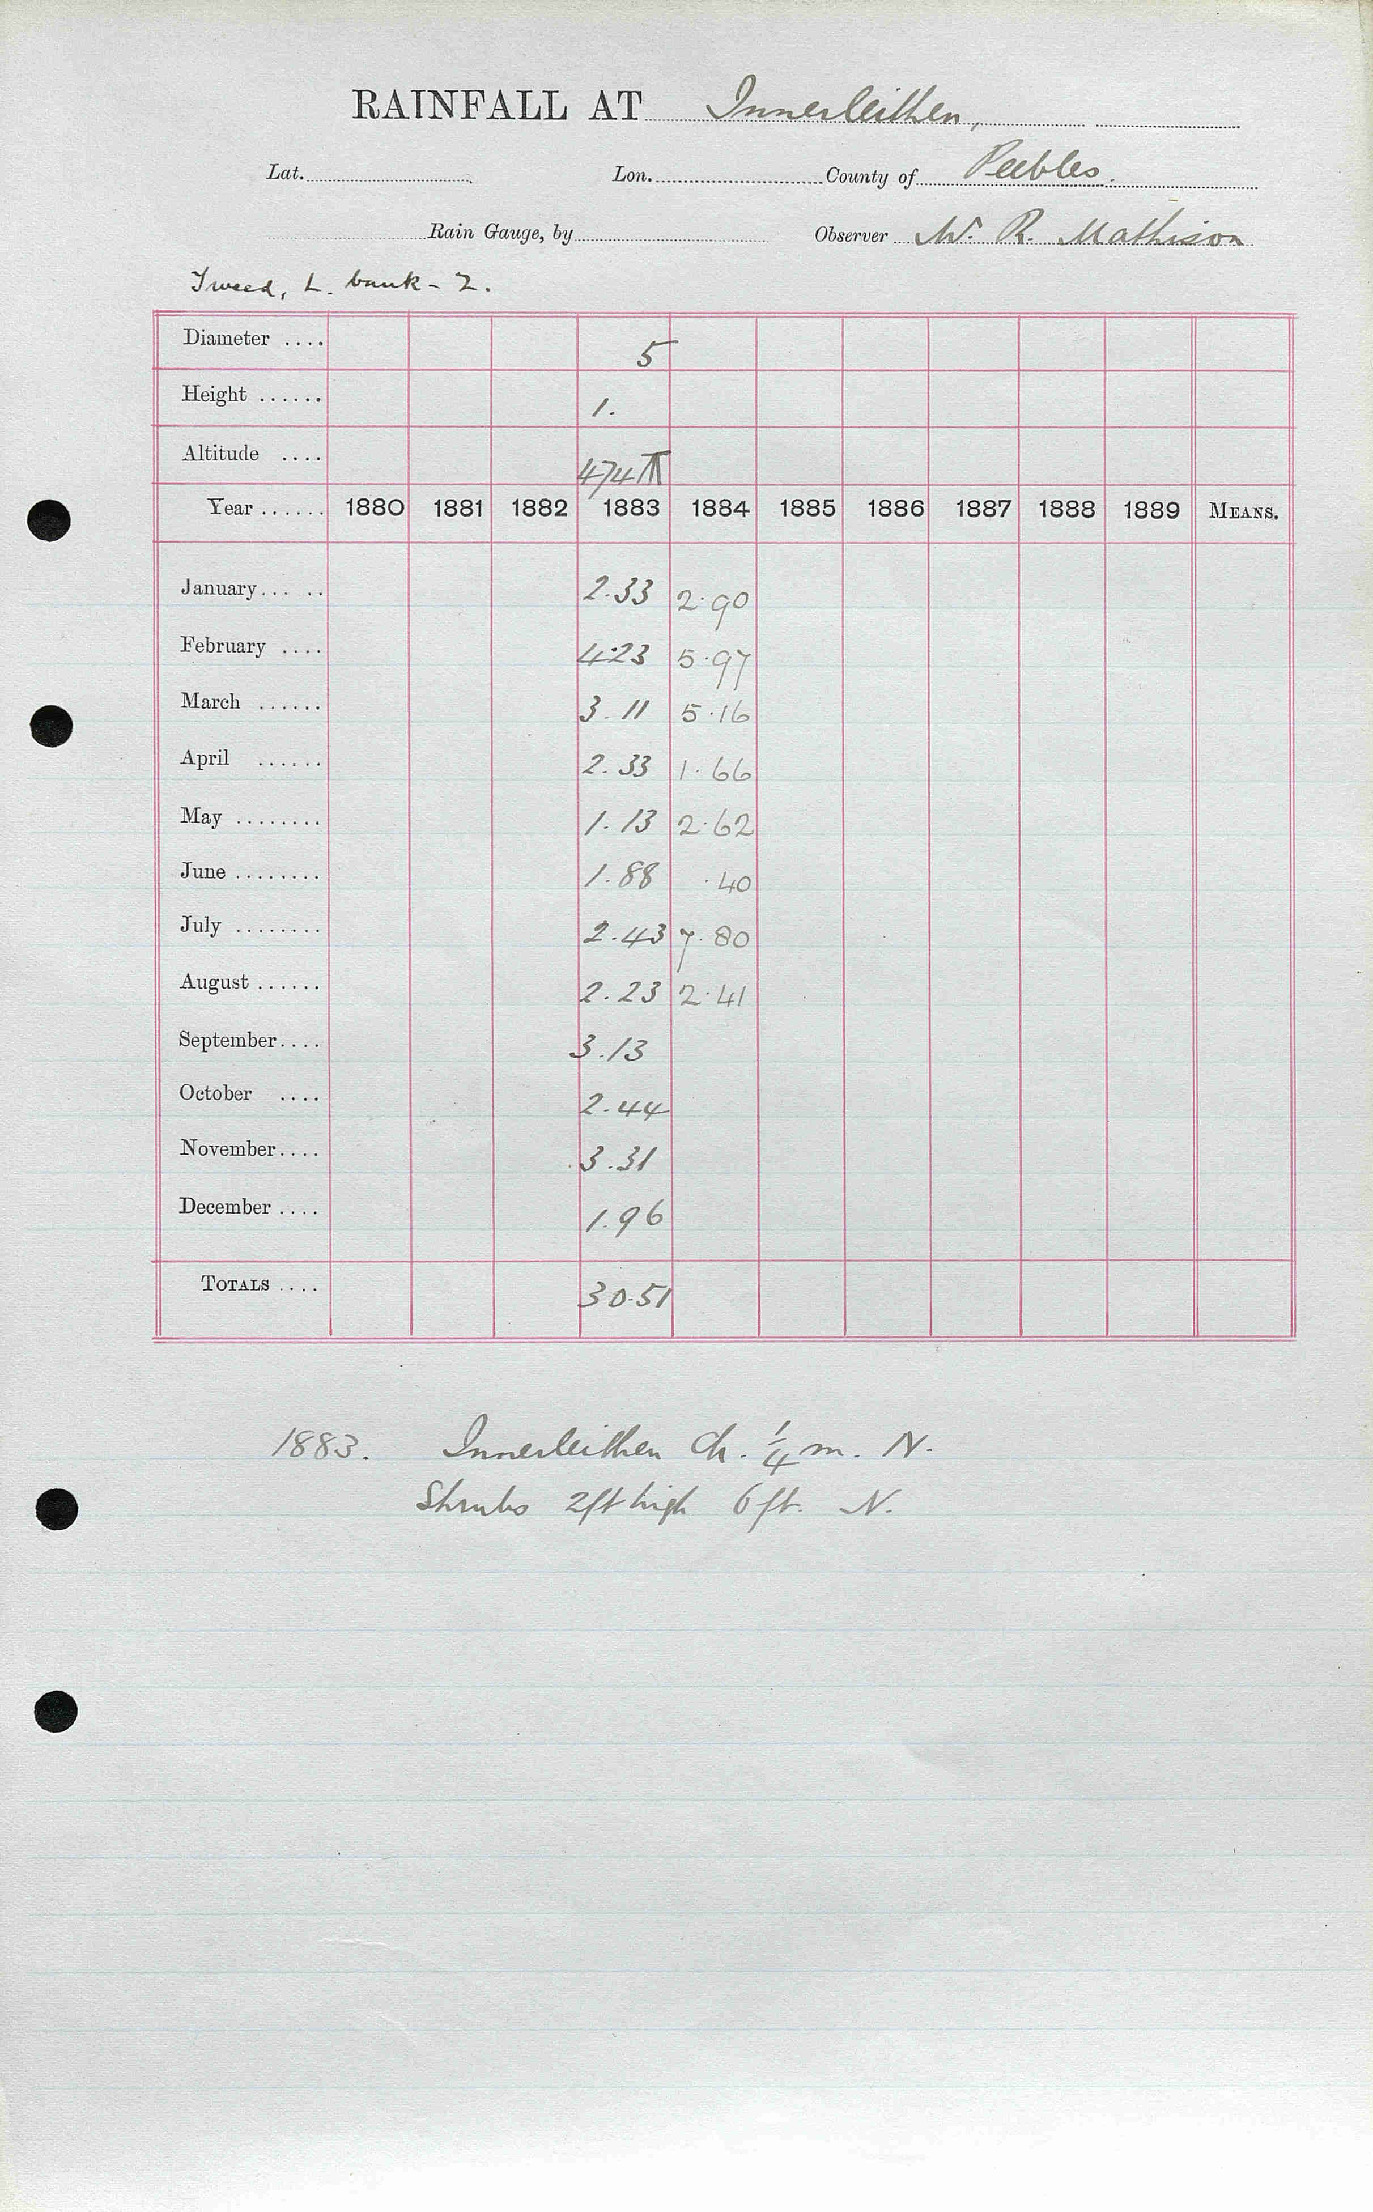 RAINFALL AT Innerleithen,
Lat. Lon. County of Peebles.
Rain Gauge, by Observer W. R. Mathison
Tweed, L. bank - 2.
Diameter .... 5
Height ...... 1.
Altitude .... 474
Year ...... 1880 1881 1882 1883 1884 1885 1886 1887 1888 1889 MEANS.
January... .. 2.33 2.90
February .... 4.23 5.97
March ...... 3.11 5.16
April ...... 2.33 1.66
May ........ 1.13 2.62
June ........ 1.88 .40
July ........ 2.43 7.80
August ...... 2.23 2.41
September.... 3.13
October .... 2.44
November.... 3.31
December .... 1.96
TOTALS .... 30.51
1883. Innerleithen Ch. 1/4 m. N.
Shrubs 2ft high 6 ft. N.